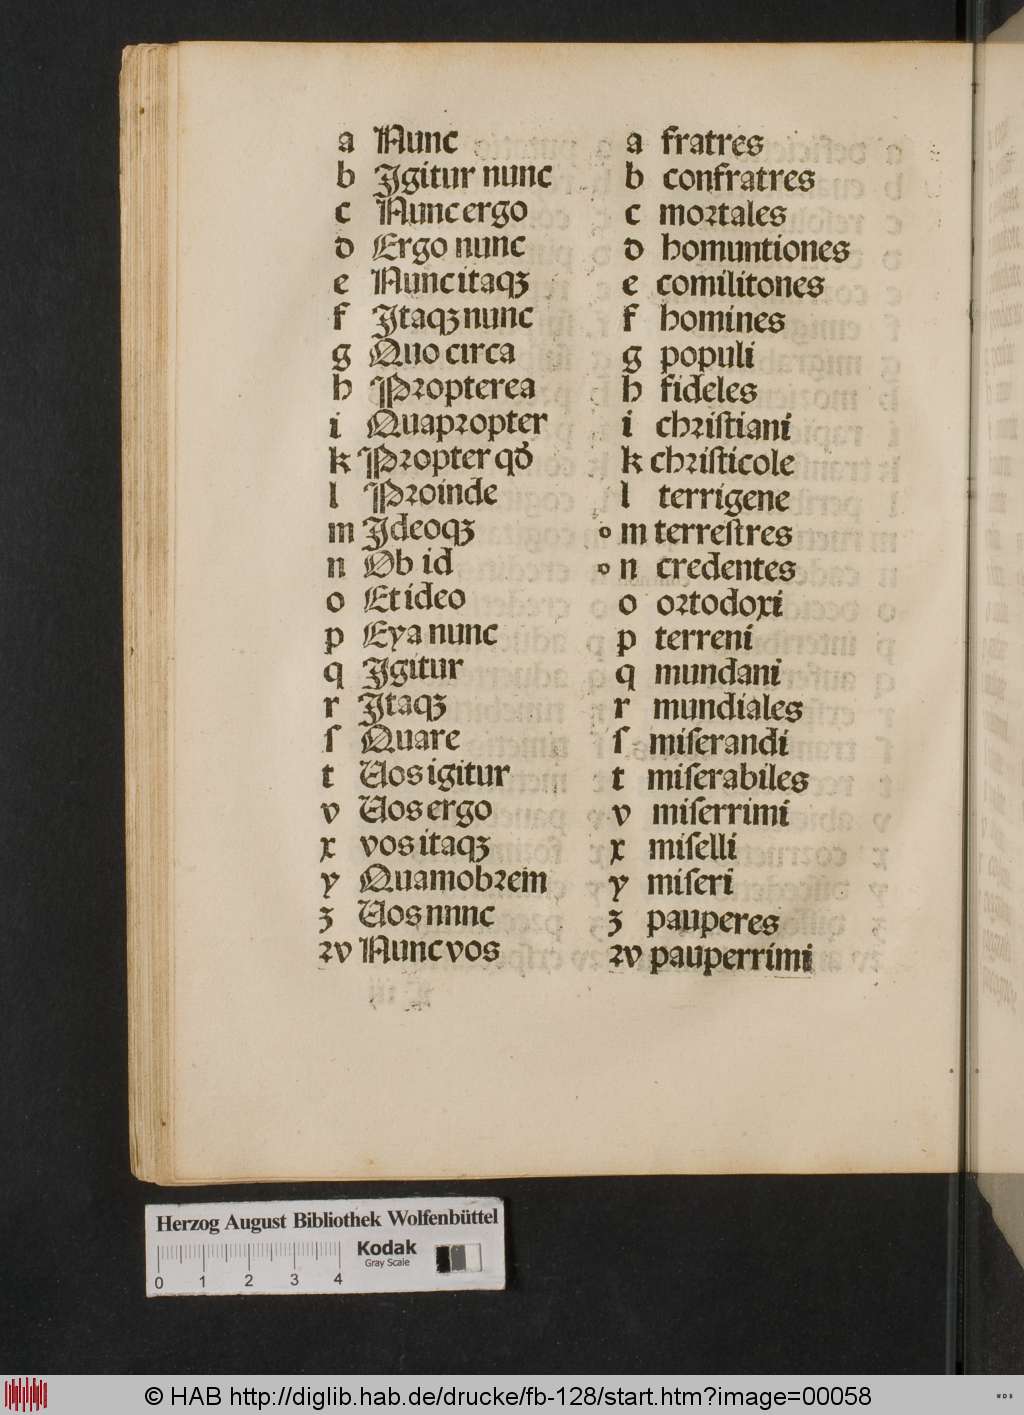 a Nunc
b Igitur nunc
c Nunc ergo
d Ergo nunc
e Nunc itaqꝫ
f Itaqꝫ nunc
g Quo circa
h Pꝛopterea
i Quapꝛopter
k Pꝛopter qđ
l Pꝛoinde
m Ideoqꝫ
n Ob id
o Et ideo
p Eya nunc
q Igitur
r Itaqꝫ
ſ Quare
t Uos igitur
v Uos ergo
x vos itaqꝫ
y Quamobꝛem
ʒ Uos nnnc
ꝛv Nunc vos
a fratres
b confratres
c moꝛtales
d homuntiones
e comilitones
f homines
g populi
h fideles
i chꝛiſtiani
k chꝛiſticole
l terrigene
m terreſtres
n credentes
o oꝛtodoxi
p terreni
q mundani
r mundiales
ſ miſerandi
t miſerabiles
v miſerrimi
x miſelli
y miſeri
ʒ pauperes
ꝛv pauperrimi
Herzog August Bibliothek Wolfenbüttel
Kodak
Gray Scale
0 1 2 3 4
© HAB http://diglib.hab.de/drucke/fb-128/start.htm?image=00058